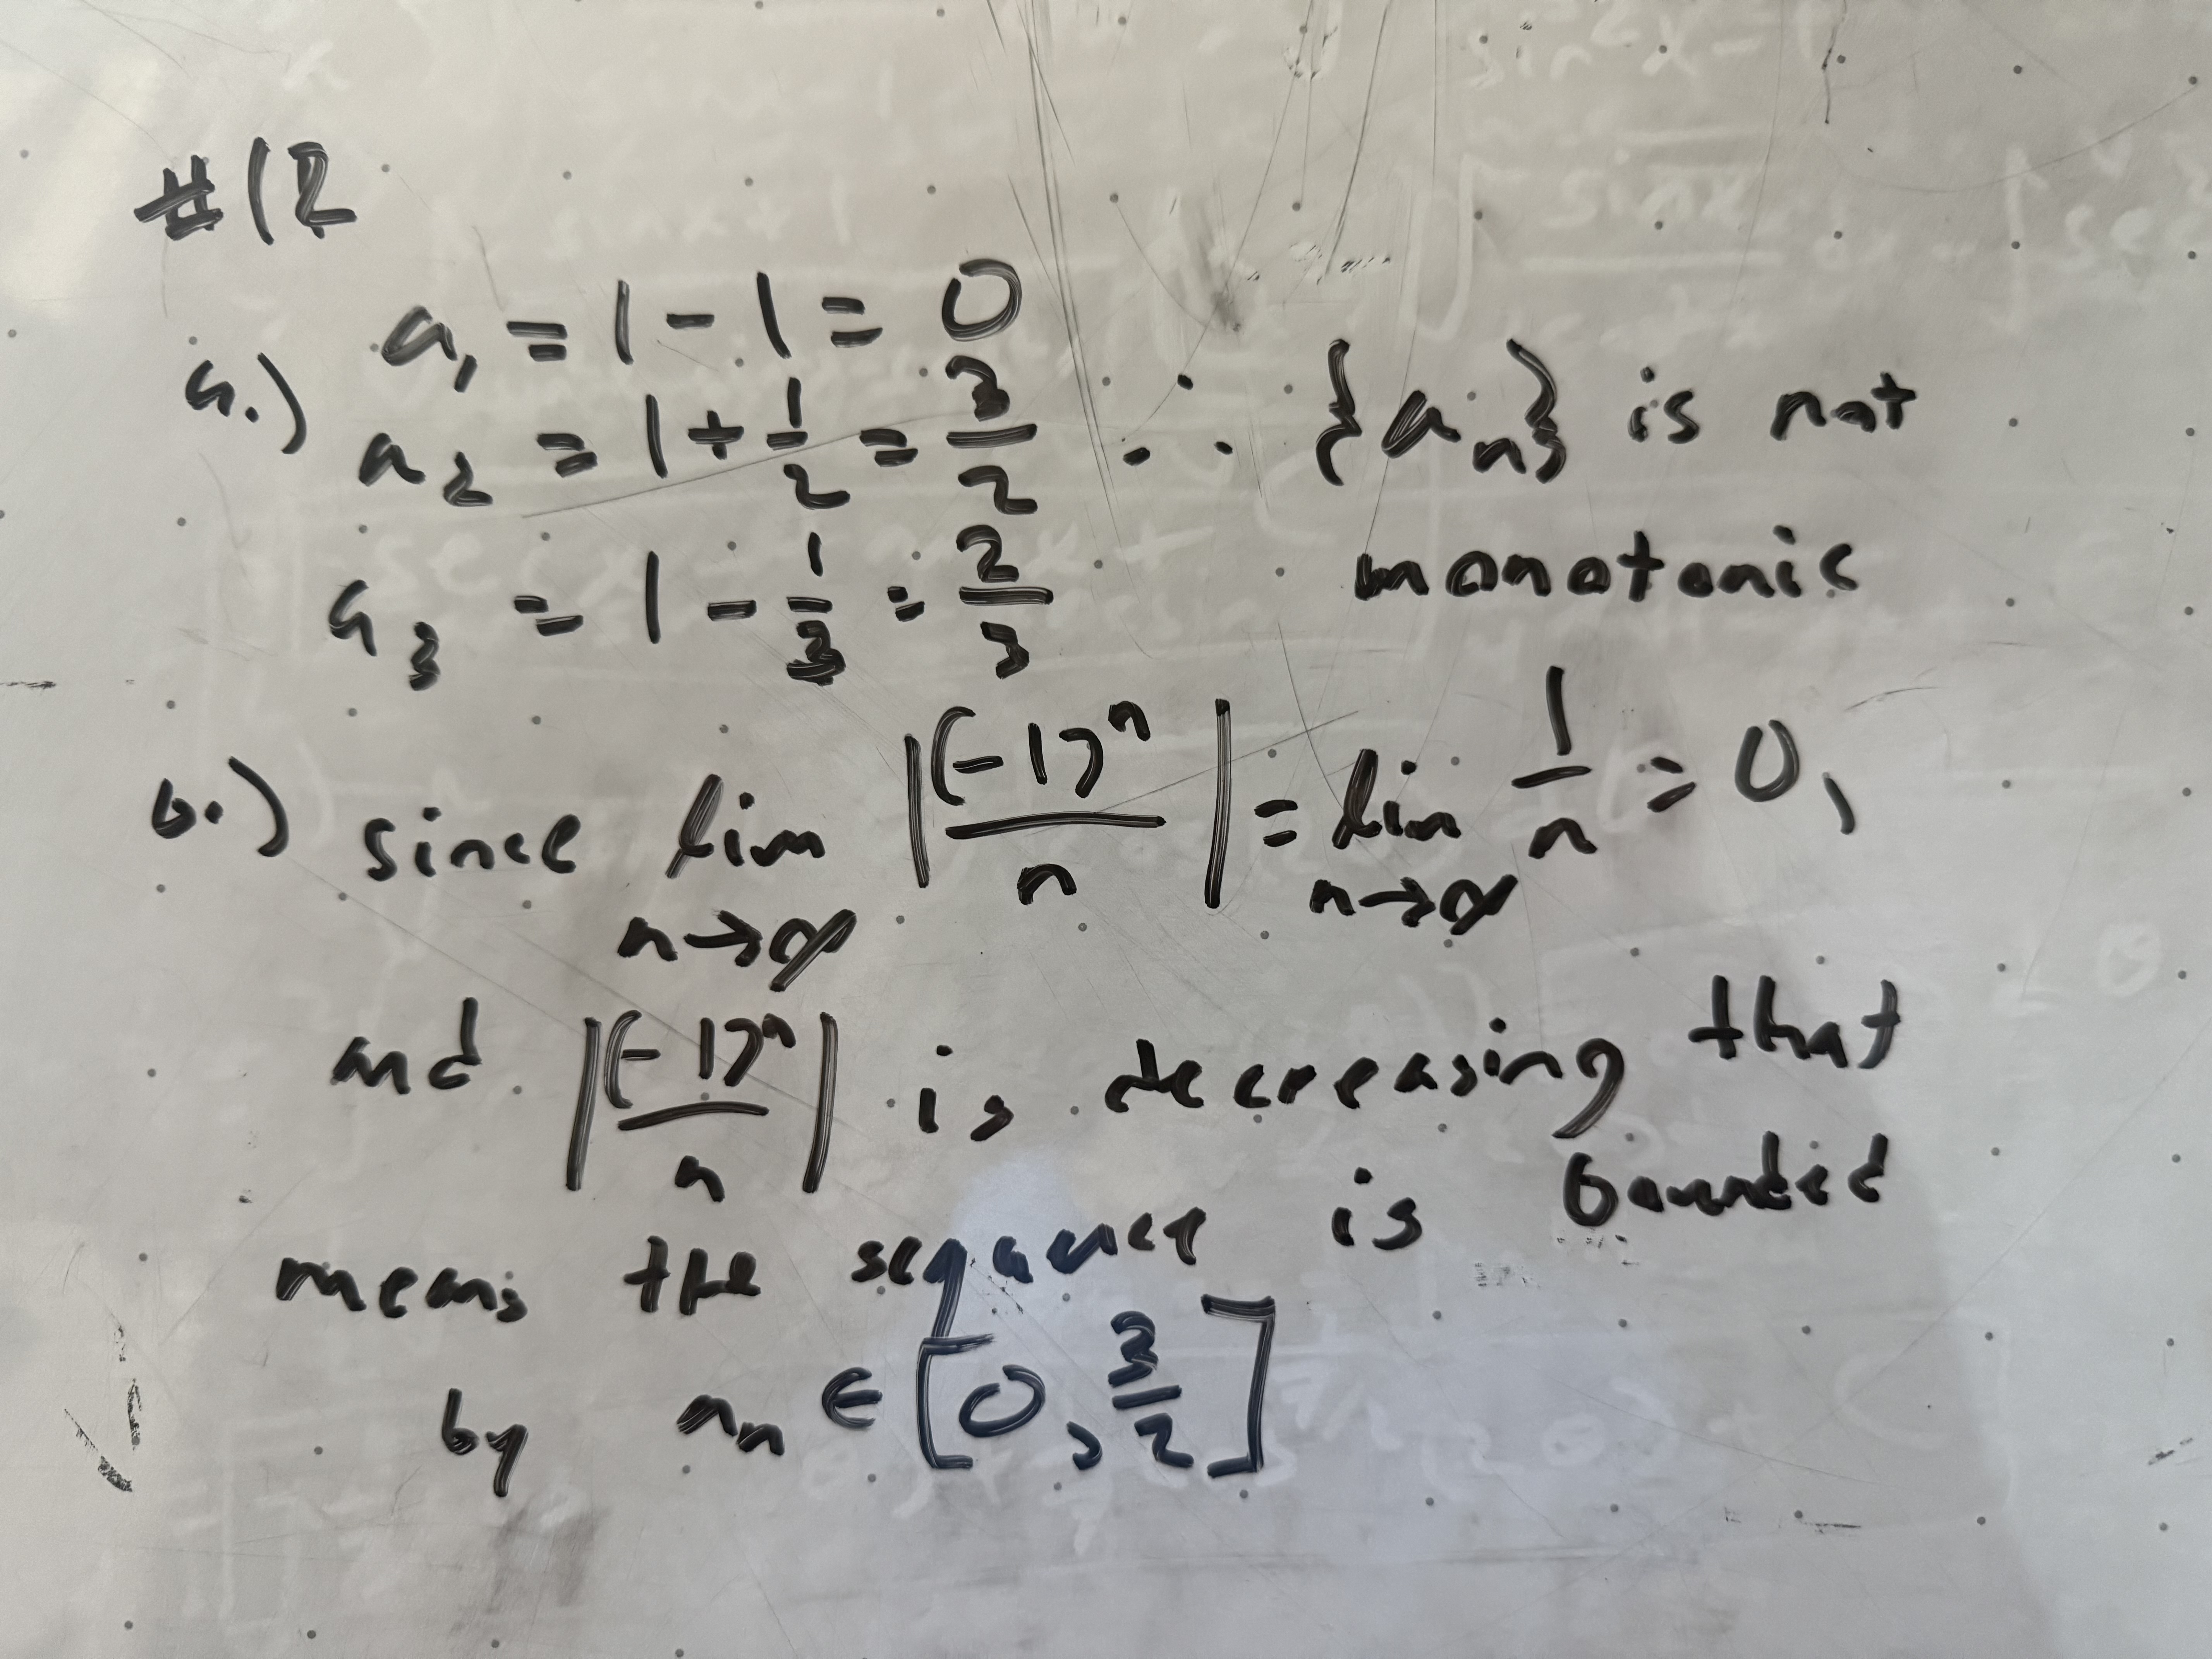 #12
a.) a₁ = 1 - 1 = 0
a₂ = 1 + 1/2 = 3/2 ∴ {aₙ} is not
a₃ = 1 - 1/3 = 2/3 monotonic
b.) since lim n→∞ |(-1)ⁿ/n| = lim n→∞ 1/n = 0,
and |(-1)ⁿ/n| is decreasing that
means the sequence is bounded
by aₙ ∈ [0, 3/2]